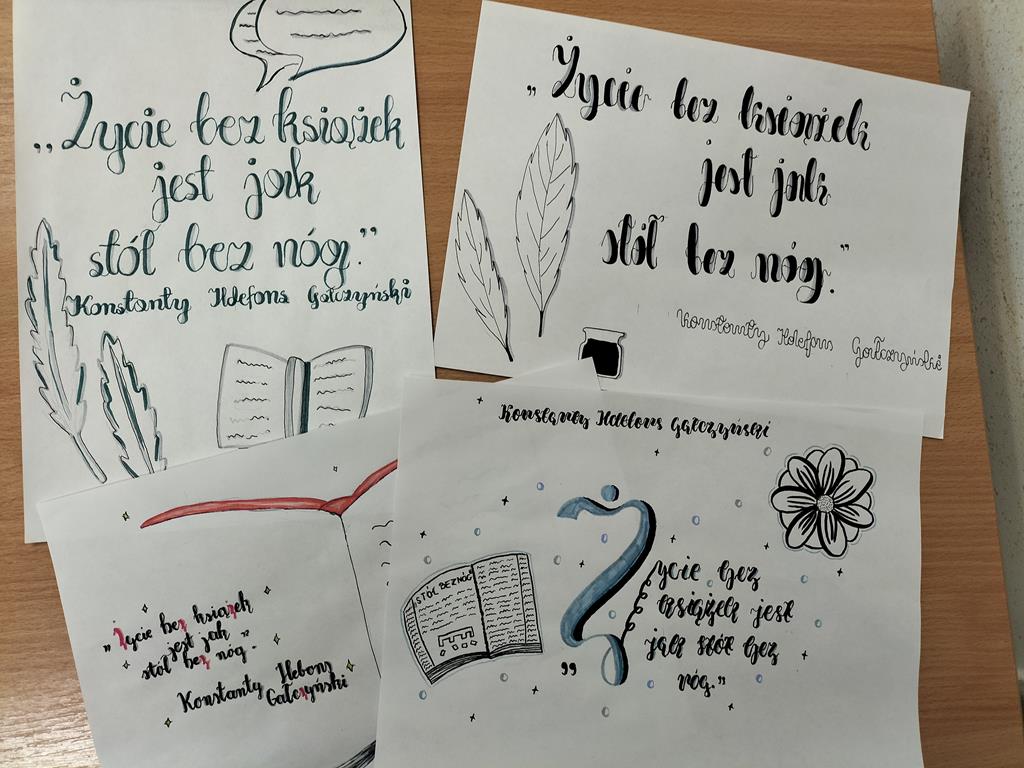 „Życie bez książek
jest jak
stół bez nóg."
Konstanty Ildefons Gałczyński
„Życie bez książek
jest jak
stół bez nóg."
Konstanty Ildefons Gałczyński
„Życie bez książek
jest jak
stół bez nóg."
Konstanty Ilebons
Gałczyński
Konstanty Ildefons Gałczyński
STÓL BEZ NÓG
„Życie bez
książek jest
jak stół bez
nóg."